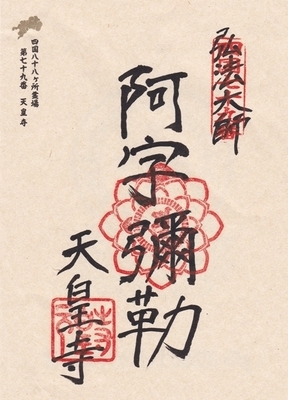 四国八十八ヶ所霊場
第七十九番 天皇寺
弘法大師
阿字彌勒
天皇寺